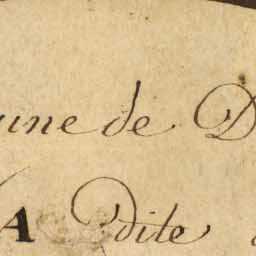 une de D
A dite